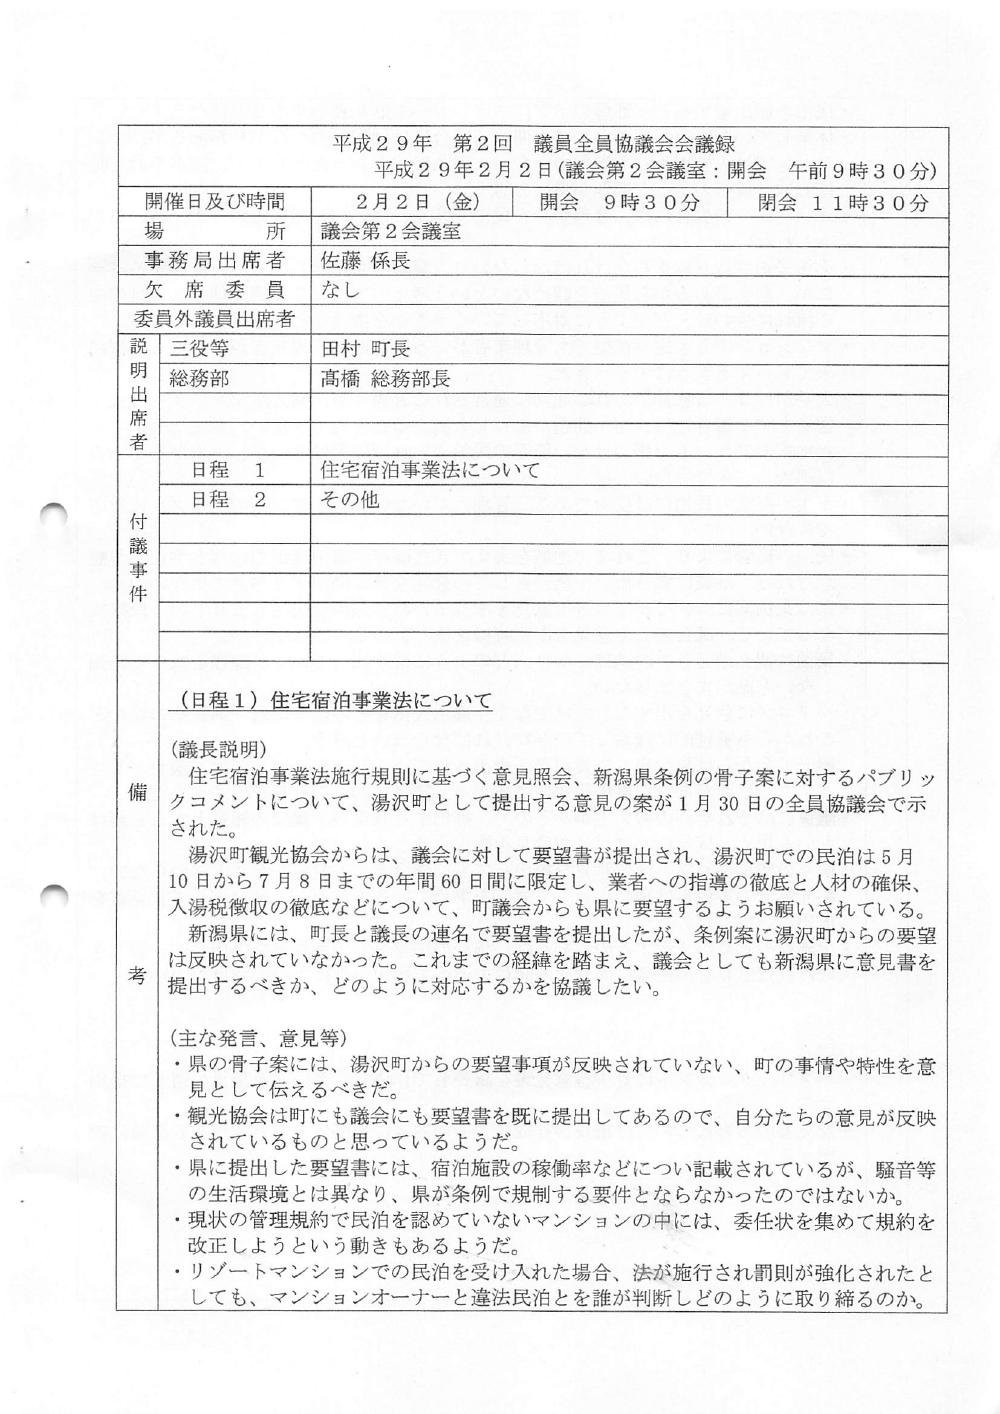 平成２９年　第２回　議員全員協議会会議録
平成２９年２月２日(議会第２会議室：開会　午前９時３０分)
開催日及び時間　２月２日（金）　開会　９時３０分　閉会 １１時３０分
場　所　議会第２会議室
事務局出席者　佐藤 係長
欠席委員　なし
委員外議員出席者
説明出席者
三役等　田村 町長
総務部　髙橋 総務部長
付議事件
日程　１　住宅宿泊事業法について
日程　２　その他
備考
（日程１）住宅宿泊事業法について
(議長説明)
住宅宿泊事業法施行規則に基づく意見照会、新潟県条例の骨子案に対するパブリッ
クコメントについて、湯沢町として提出する意見の案が１月 30 日の全員協議会で示
された。
湯沢町観光協会からは、議会に対して要望書が提出され、湯沢町での民泊は５月
10 日から７月８日までの年間 60 日間に限定し、業者への指導の徹底と人材の確保、
入湯税徴収の徹底などについて、町議会からも県に要望するようお願いされている。
新潟県には、町長と議長の連名で要望書を提出したが、条例案に湯沢町からの要望
は反映されていなかった。これまでの経緯を踏まえ、議会としても新潟県に意見書を
提出するべきか、どのように対応するかを協議したい。
(主な発言、意見等)
・県の骨子案には、湯沢町からの要望事項が反映されていない、町の事情や特性を意
見として伝えるべきだ。
・観光協会は町にも議会にも要望書を既に提出してあるので、自分たちの意見が反映
されているものと思っているようだ。
・県に提出した要望書には、宿泊施設の稼働率などについ記載されているが、騒音等
の生活環境とは異なり、県が条例で規制する要件とならなかったのではないか。
・現状の管理規約で民泊を認めていないマンションの中には、委任状を集めて規約を
改正しようという動きもあるようだ。
・リゾートマンションでの民泊を受け入れた場合、法が施行され罰則が強化されたと
しても、マンションオーナーと違法民泊とを誰が判断しどのように取り締るのか。